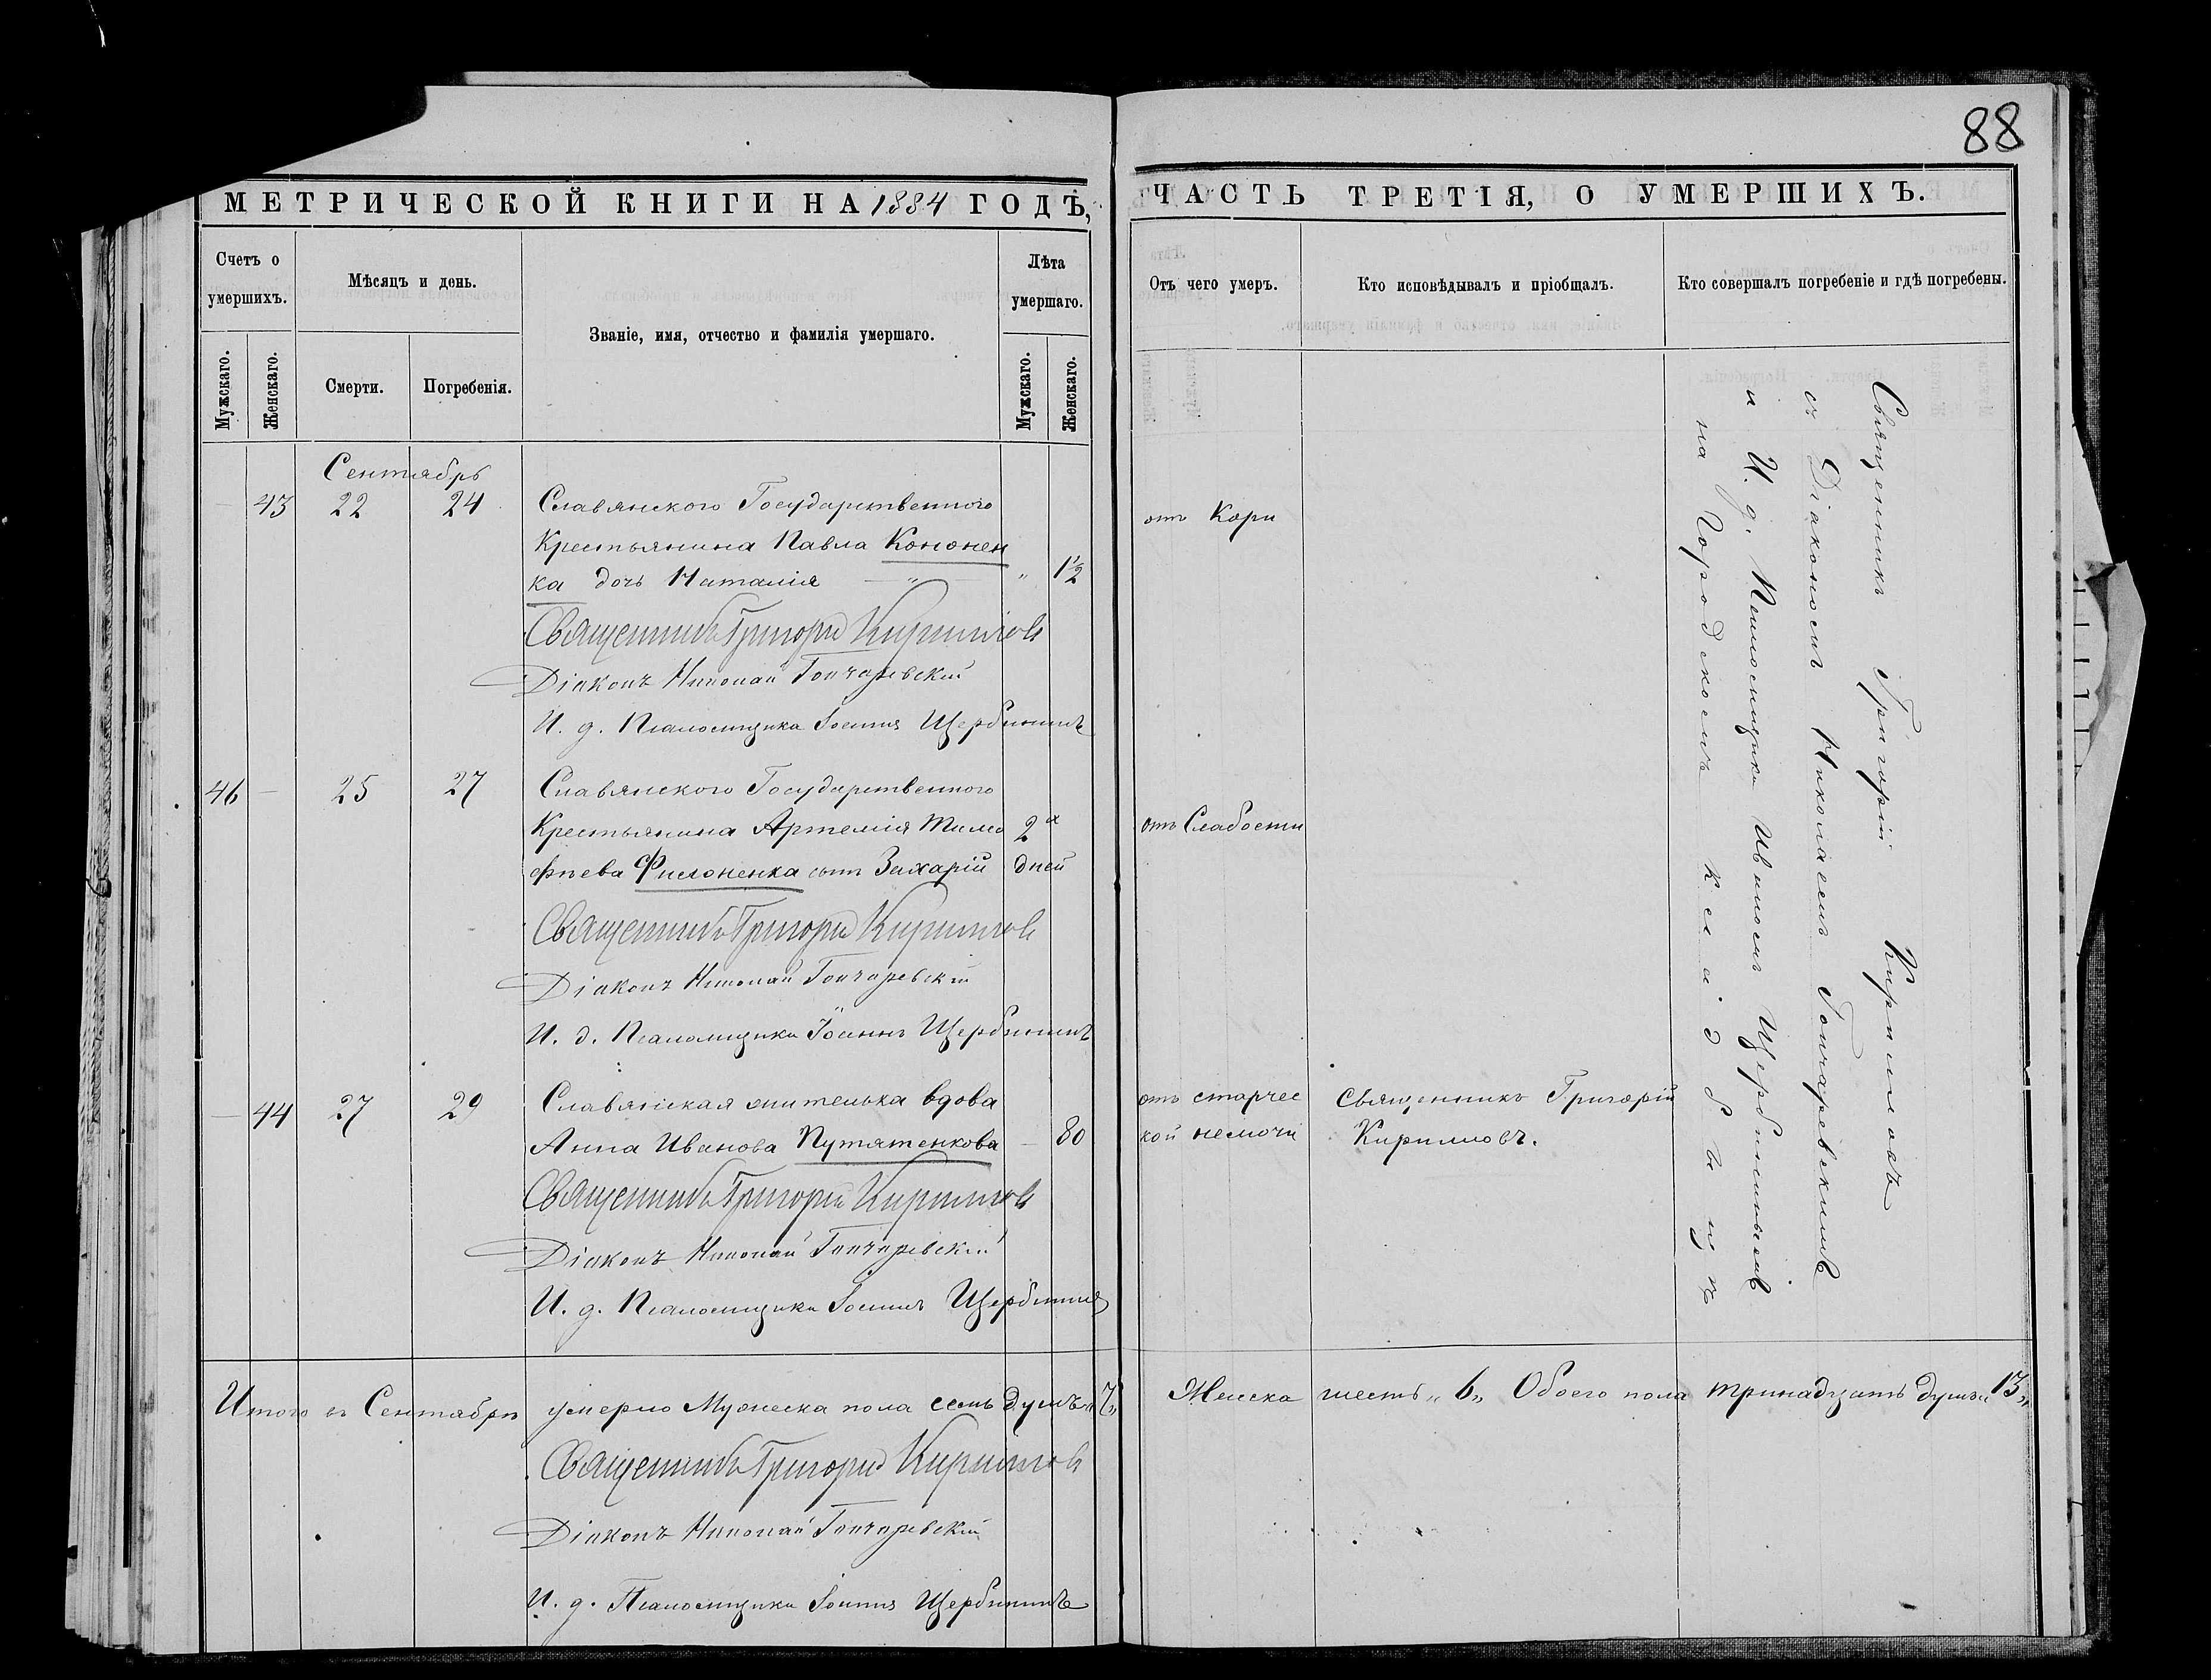 88
МЕТРИЧЕСКОЙ КНИГИ НА 1884 ГОДЪ,
ЧАСТЬ ТРЕТІЯ, О УМЕРШИХЪ.
Счетъ о умершихъ.
Мужскаго.
Женскаго.
Мѣсяцъ и день.
Смерти.
Погребенія.
Званіе, имя, отчество и фамилія умершаго.
Лѣта умершаго.
Мужскаго.
Женскаго.
Отъ чего умеръ.
Кто исповѣдывалъ и пріобщалъ.
Кто совершалъ погребеніе и гдѣ погребены.
Сентябрь
— 43 22 24 Славянского Государственного
Крестьянина Павла Кононен
ка дочь Наталія — „ „ 1½
отъ Кори
Священникъ Григорій Кирилловъ
Діаконъ Николай Гончаревскій
И. д. Псаломщика Іоаннъ Щербининъ
46 — 25 27 Славянского Государственного
Крестьянина Артемія Тимо 2х
фѣева Филоненка сынъ Захарій дней
отъ Слабости
Священникъ Григорій Кирилловъ
Діаконъ Николай Гончаревскій
И. д. Псаломщика Іоаннъ Щербининъ
— 44 27 29 Славянская жителька вдова
Анна Иванова Путятенкова — 80
отъ старчес
кой немочи
Священникъ Григорій
Кирилловъ.
Священникъ Григорій Кирилловъ
Діаконъ Николай Гончаревскій
И. д. Псаломщика Іоаннъ Щербининъ
Священникъ Григорій Кирилловъ
съ Діакономъ Николаемъ Гончаревскимъ
и И. д. Псаломщика Иваномъ Щербининымъ
на Городскомъ кладбищѣ
Итого въ Сентябрѣ умерло Мужеска пола семь душъ „7„ Женска шесть „6„ Обоего пола тринадцать душъ „13„
Священникъ Григорій Кирилловъ
Діаконъ Николай Гончаревскій
И. д. Псаломщика Іоаннъ Щербининъ